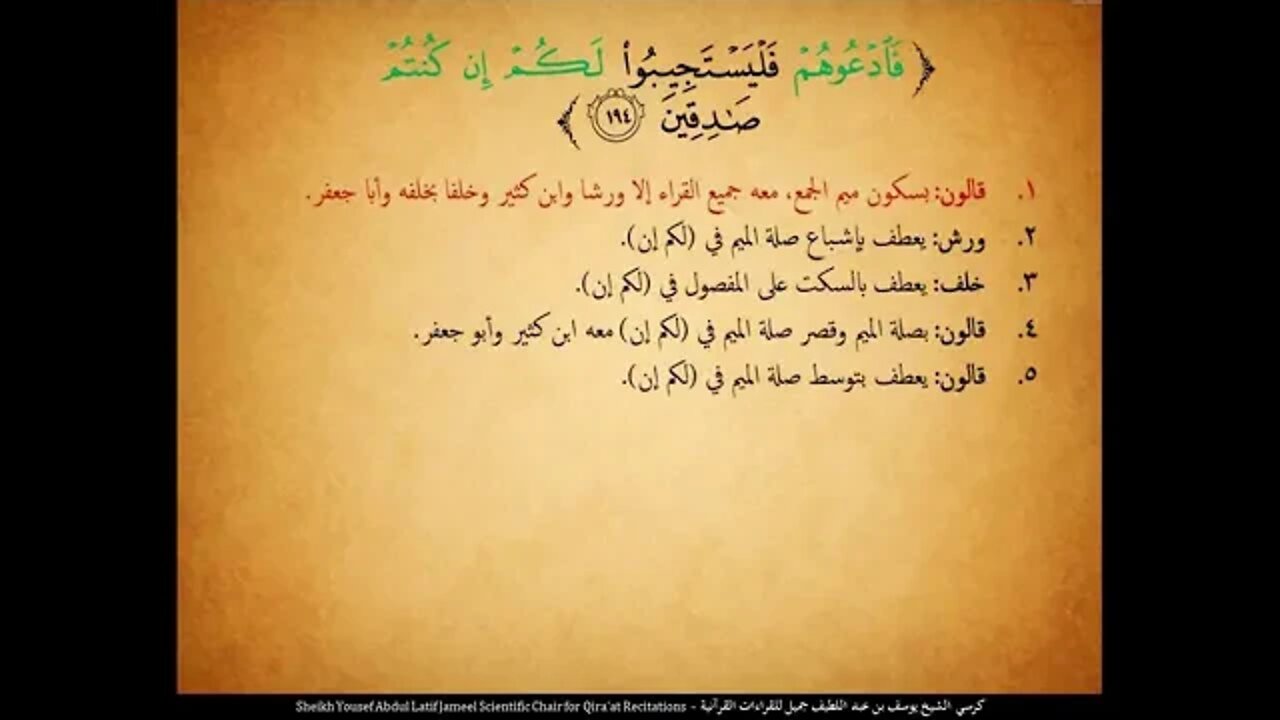 ﴿ فَٱدۡعُوهُمۡ فَلۡيَسۡتَجِيبُواْ لَكُمۡ إِن كُنتُمۡ
صَٰدِقِينَ ١٩٤ ﴾
١. قالون: بسكون ميم الجمع، معه جميع القراء إلا ورشا وابن كثير وخلفا بخلفه وأبا جعفر.
٢. ورش: يعطف بإشباع صلة الميم في (لكم إن).
٣. خلف: يعطف بالسكت على المفصول في (لكم إن).
٤. قالون: بصلة الميم وقصر صلة الميم في (لكم إن) معه ابن كثير وأبو جعفر.
٥. قالون: يعطف بتوسط صلة الميم في (لكم إن).
كرسي الشيخ يوسف بن عبد اللطيف جميل للقراءات القرآنية - Sheikh Yousef Abdul Latif Jameel Scientific Chair for Qira'at Recitations